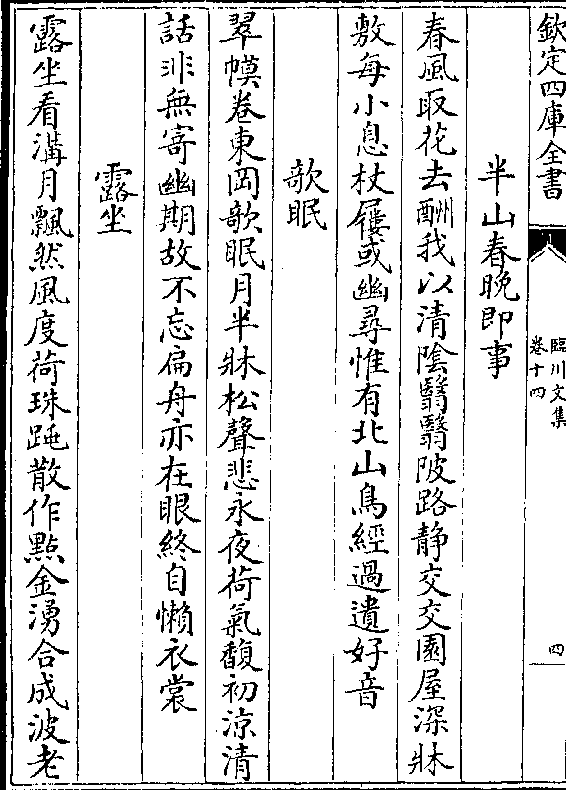 欽定四庫全書
臨川文集
卷十四
四
半山春晚即事
春風取花去酬我以清陰翳翳陂路静交交園屋深牀
敷每小息杖屨或幽尋惟有北山鳥經過遺好音
欹眠
翠幙卷東岡欹眠月半牀松聲悲永夜荷氣馥初涼清
話非無寄幽期故不忘扁舟亦在眼終自懶衣裳
露坐
露坐看溝月飄然風度荷珠跳散作點金湧合成波老